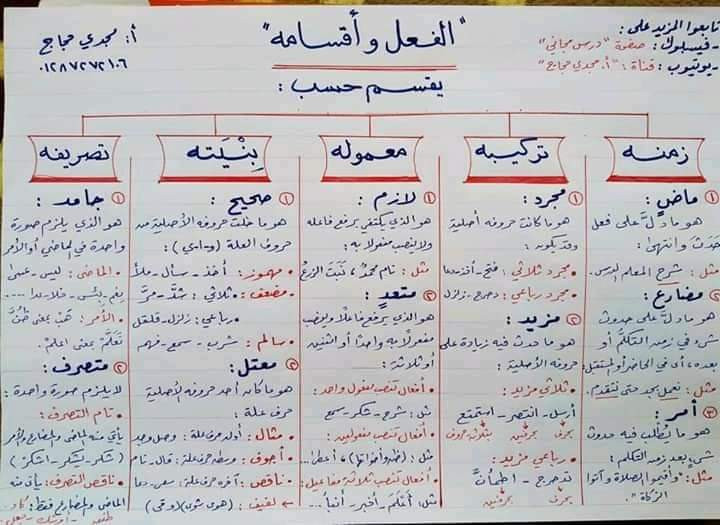 تابعوا المزيد على :
- فيسبوك : صفحة "درس مجاني"
- يوتيوب : قناة : "أ. مجدي حجاج"
"الفعل وأقسامه"
أ. مجدي حجاج
٠١٢٨٧٢٧٢١٠٦
يقسم حسب :
زمنه
① ماضٍ :
هو ما دلَّ على فعل
حَدَثَ وانتهى :
مثل : شرح المعلم الدرس.
② مضارع :
هو ما دلَّ على حدوث
شيء في زمن التكلم أو
بعده، أي في الحاضر أو المستقبل
مثل : نعمل بجد حتى نتقدم.
③ أمر :
هو ما يُطلب فيه حدوث
شيء بعد زمن التكلم :
مثل : "وأقيموا الصلاة وآتوا
الزكاة".
تركيبه
① مجرد :
هو ما كانت حروفه أصلية
وقد يكون :
• مجرد ثلاثي : فتح - أخذ - دعا
• مجرد رباعي : دحرج - زلزل
② مزيد :
هو ما حدثت فيه زيادة على
حروفه الأصلية :
• ثلاثي مزيد :
أرسل - انتصر - استمتع
بحرف بحرفين بثلاثة حروف
• رباعي مزيد :
تدحرج - اطمأنَّ
بحرف بحرفين
معموله
① لازم :
هو الذي يكتفي برفع فاعله
ولا ينصب مفعولا به :
مثل : نام محمدٌ، نَبَتَ الزرعُ
② متعدٍ :
هو الذي يرفع فاعلًا وينصب
مفعولًا به واحدًا أو اثنين
أو ثلاثة :
• أفعال تنصب مفعول واحد :
مثل : شرح - شكر - سمع
• أفعال تنصب مفعولين :
مثل : (ظن وأخواتها)، أعطى...
• أفعال تنصب ثلاثة مفاعيل :
مثل : أَعْلَمَ - أخبر - أنبأ...
بِنْيَته
① صحيح :
هو ما خلت حروفه الأصلية من
حروف العلة (و-ا-ي) :
• مهموز : أخذ - سأل - ملأ
• مضعف : • ثلاثي : شدَّ - مرَّ
• رباعي : زلزل - قلقل
• سالم : شرب - سمع - فهم
② معتل :
هو ما كان أحد حروفه الأصلية
حرف علة :
• مثال : أوله حرف علة : وصل وجد
• أجوف : وسطه حرف علة : قال - نام
• ناقص : آخره حرف علة : سعى - دعا
← لفيف : (هوى شوى) (وقى)
تصريفه
① جامد :
هو الذي يلزم صورة
واحدة في الماضي أو الأمر
• الماضي : ليس - عسى
نعم - بئس - خلا - عدا ....
• الأمر : هَبْ بمعنى ظُنَّ
تَعَلَّمْ بمعنى اعلم.
② متصرف :
لا يلزم صورة واحدة :
• تام التصرف :
يأتي منه الماضي والمضارع والأمر
(شكر - يشكر - اشكر)
• ناقص التصرف : يأتي منه
الماضي والمضارع فقط : كاد